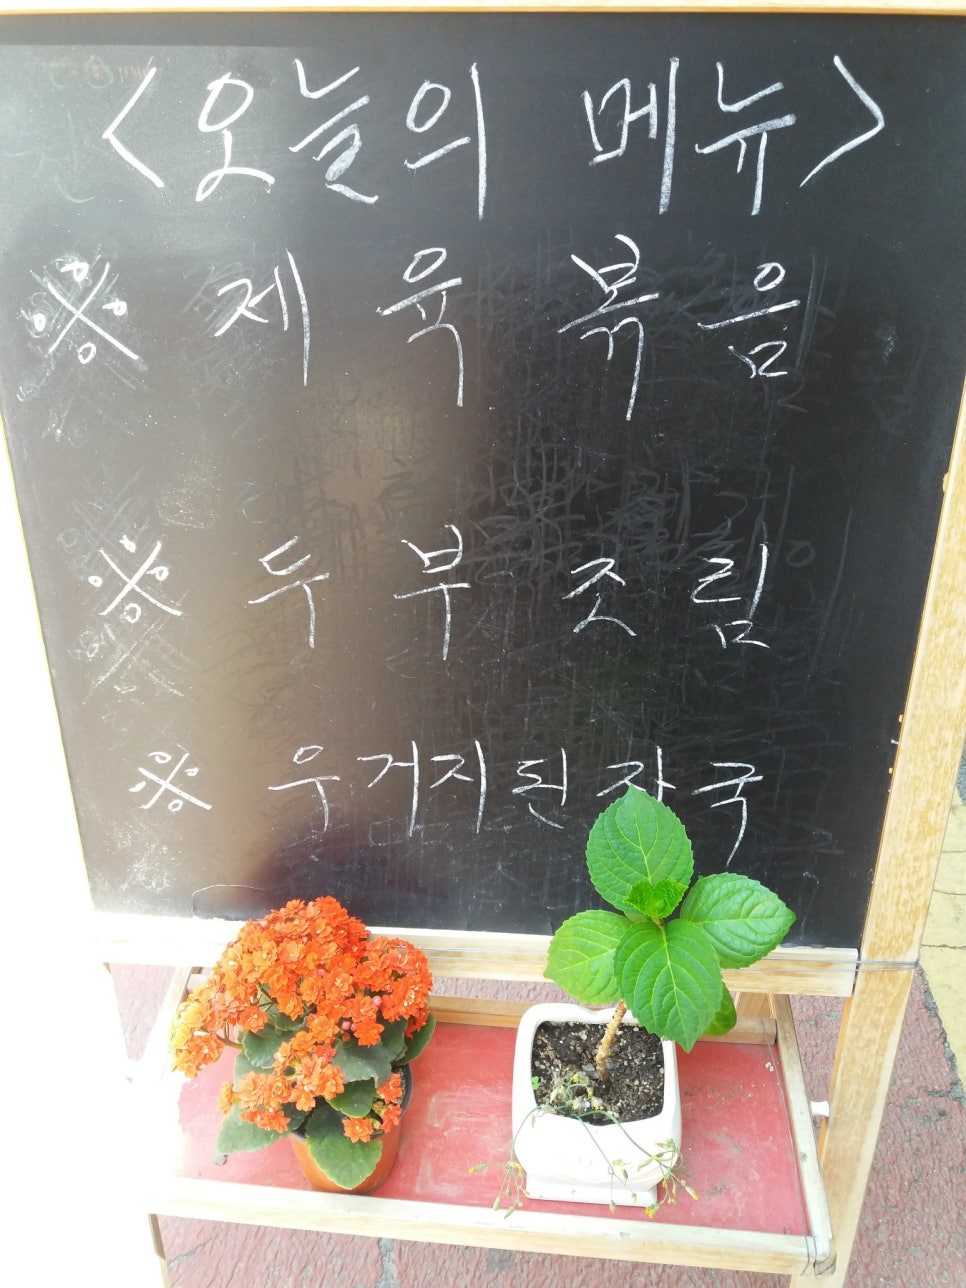 <오늘의 메뉴>
※ 제육볶음
※ 두부조림
※ 우거지된자국